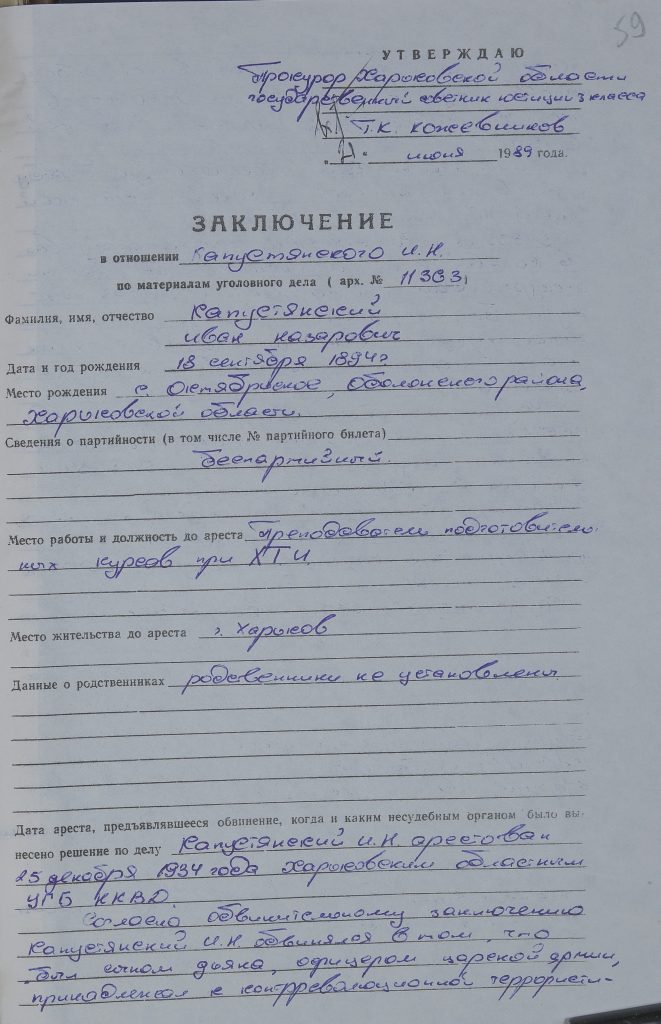 59
УТВЕРЖДАЮ
Прокурор Харьковской области
государственный советник юстиции 3 класса
Т.К. Кожевников
" " июня 1989 года.
ЗАКЛЮЧЕНИЕ
в отношении Капустянского И.Н.
по материалам уголовного дела ( арх. № 11363)
Фамилия, имя, отчество Капустянский
Иван Назарович
Дата и год рождения 18 сентября 1894г
Место рождения с. Октябрьское, Оболонского района,
Харьковской области.
Сведения о партийности (в том числе № партийного билета)
беспартийный.
Место работы и должность до ареста Преподаватель подготовитель-
ных курсов при ХТИ.
Место жительства до ареста г. Харьков
Данные о родственниках родственники не установлены
Дата ареста, предъявлявшееся обвинение, когда и каким несудебным органом было вы-
несено решение по делу Капустянский И.Н. арестован
25 декабря 1934 года Харьковским областным
УГБ НКВД.
Согласно обвинительному заключению
Капустянский И.Н. обвинялся в том, что
был сыном дьяка, офицером царской армии,
принадлежал к контрреволюционной террористи-